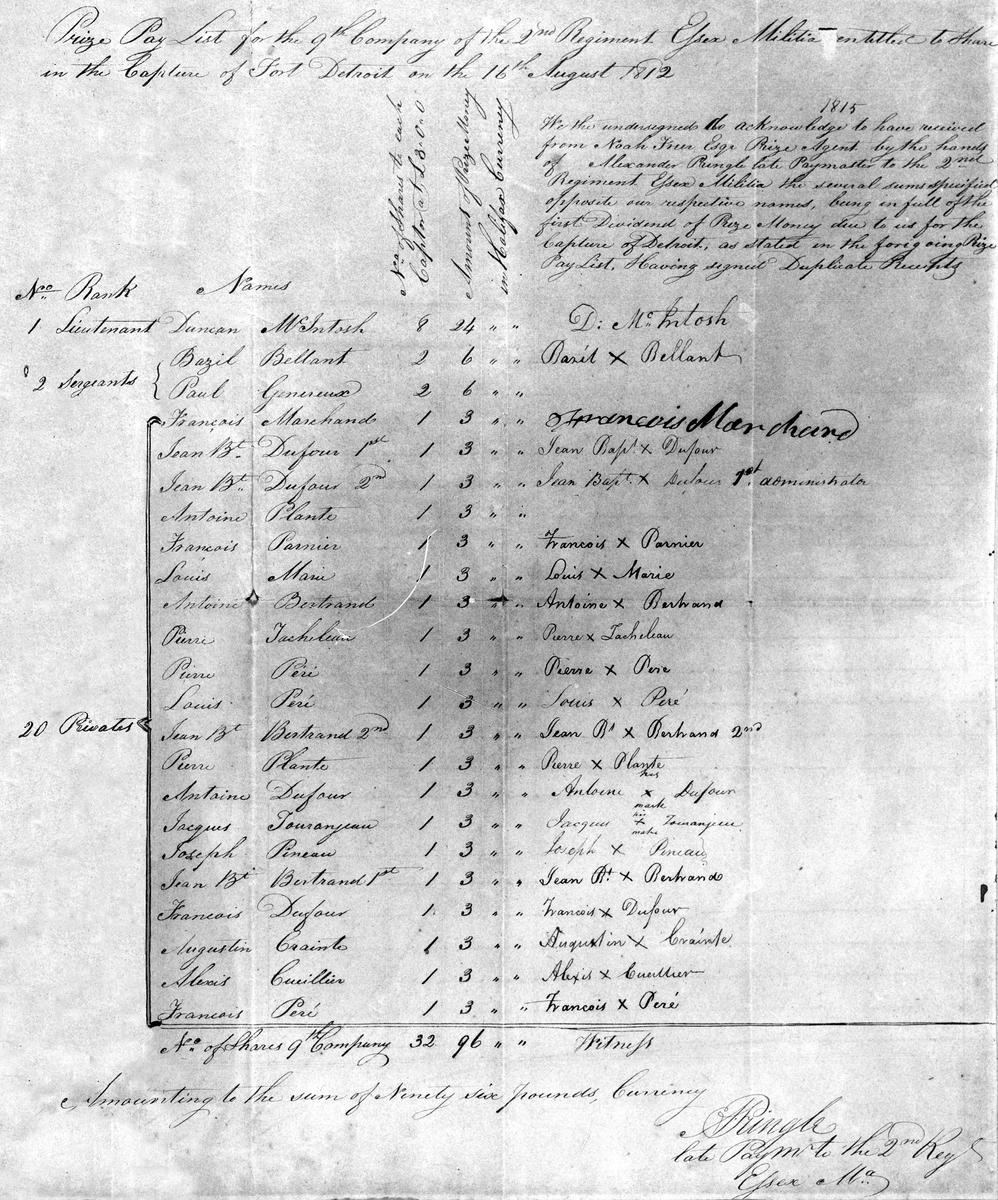 Prize Pay List for the 9th Company of the 2nd Regiment Essex Militia entitled to share
in the Capture of Fort Detroit on the 16th August 1812
No of Shares to each
Captn at £3.0.0
Amount of Prize Money
in Halifax Currency
1815
We the undersigned do acknowledge to have received
from Noah Freer Esqr Prize Agent by the hands
of Alexander Pringle late Paymaster to the 2nd
Regiment Essex Militia the several sums specified
opposite our respective names, being in full of the
first Dividend of Prize Money due to us for the
Capture of Detroit, as stated in the forigoing Prize
Pay List. Having signed Duplicate Receipts
Nos Rank Names
1 Lieutenant Duncan McIntosh 8 24 " " D: McIntosh
2 Sergeants
Bazil Bellant 2 6 " " Bazil X Bellant
Paul Genereux 2 6 " "
20 Privates
François Marchand 1 3 " " François Marchand
Jean Bt. Dufour 1st 1 3 " " Jean Bapt. X Dufour
Jean Bt. Dufour 2nd 1 3 " " Jean Bapt. X Dufour 1st administrator
Antoine Plante 1 3 " "
François Parnier 1 3 " " Francois X Parnier
Louis Marie 1 3 " " Louis X Marie
Antoine Bertrand 1 3 " " Antoine X Bertrand
Pierre Tacheleau 1 3 " " Pierre X Tacheleau
Pierre Péré 1 3 " " Pierre X Pere
Louis Peré 1 3 " " Louis X Peré
Jean Bt Bertrand 2nd 1 3 " " Jean Bt X Bertrand 2nd
Pierre Plante 1 3 " " Pierre X Plante
Antoine Dufour 1 3 " " Antoine his X mark Dufour
Jacques Touranjeau 1 3 " " Jacques his X mark Touranjeau
Joseph Pineau 1 3 " " Joseph X Pineau
Jean Bt Bertrand 1st 1 3 " " Jean Bt X Bertrand
Francois Dufour 1 3 " " Francois X Dufour
Augustin Crainte 1 3 " " Augustin X Crainte
Alexis Cueillier 1 3 " " Alexis X Cueillier
Francois Peré 1 3 " " Francois X Peré
No of Shares 9th Company 32 96 " " Witness
Amounting to the sum of Ninety six pounds, Currency
APringle
late Paymr to the 2nd Regt
Essex Ma